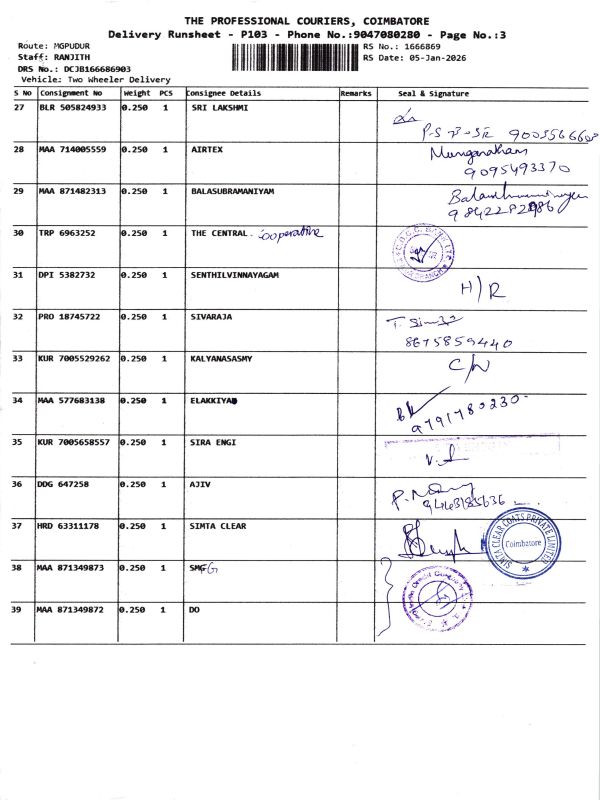 THE PROFESSIONAL COURIERS, COIMBATORE
Delivery Runsheet - P103 - Phone No.:9047080280 - Page No.:3
Route: MGPUDUR RS No.: 1666869
Staff: RANJITH RS Date: 05-Jan-2026
DRS No.: DCJB166686903
Vehicle: Two Wheeler Delivery
S No Consignment No Weight PCS Consignee Details Remarks Seal & Signature
27 BLR 505824933 0.250 1 SRI LAKSHMI
28 MAA 714005559 0.250 1 AIRTEX
9095493370
29 MAA 871482313 0.250 1 BALASUBRAMANIYAM
30 TRP 6963252 0.250 1 THE CENTRAL cooperative
31 DPI 5382732 0.250 1 SENTHILVINNAYAGAM
H/R
32 PRO 18745722 0.250 1 SIVARAJA
8675859440
33 KUR 7005529262 0.250 1 KALYANASASMY
34 MAA 577683138 0.250 1 ELAKKIYA
9791780230
35 KUR 7005658557 0.250 1 SIRA ENGI
36 DDG 647258 0.250 1 AJIV
37 HRD 63311178 0.250 1 SIMTA CLEAR
SIMTA CLEAR COATS PRIVATE LIMITED
Coimbatore
38 MAA 871349873 0.250 1 SMFG
39 MAA 871349872 0.250 1 DO